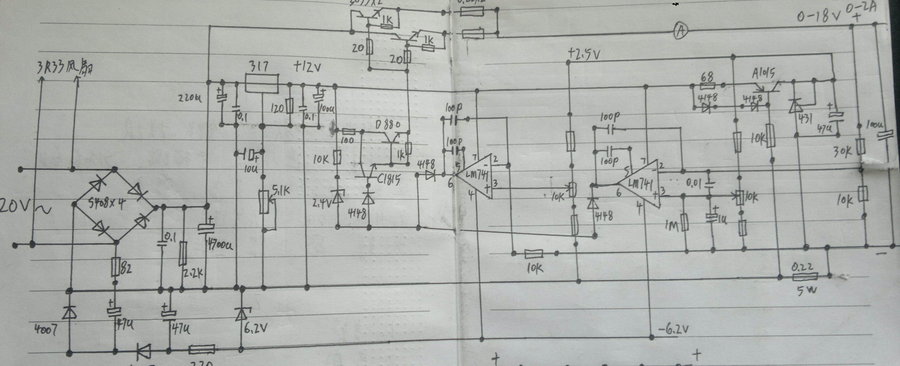 0-18V
0-2A
+
1K
1K
20
20
A
3R33风扇
+12V
+2.5V
317
A1015
68
4148
4148
220u
+
0.1
120
0.1
+
100u
100P
100P
D880
100
10K
1K
C1815
4148
LM741
7
2
5
6
3
4
+
100P
100P
LM741
7
2
5
6
3
4
+
4148
10K
431
+
47u
30K
100u
10u
5.1K
2.4V
4148
10K
0.01
1M
+
1u
10K
10K
20V~
5408×4
0.1
2.2K
+
4700u
82
10K
0.22
5W
−
4007
+
47u
+
47u
6.2V
-6.2V
+
+